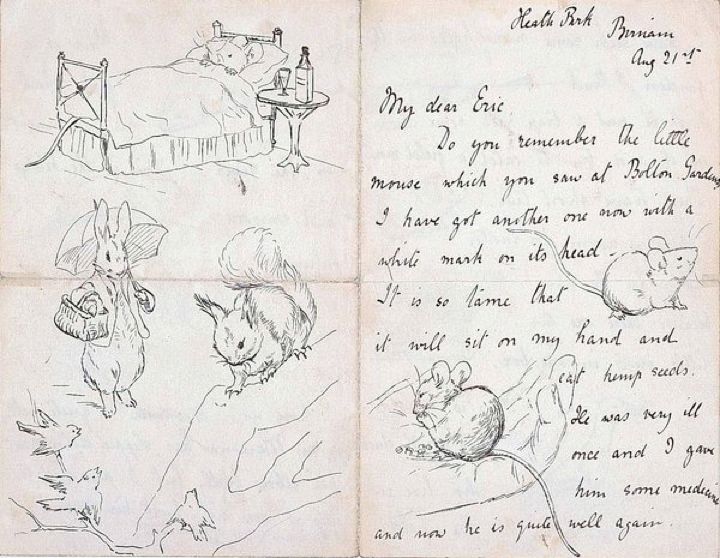 Heath Park Birnam
Aug 21st
My dear Eric
Do you remember the little
mouse which you saw at Bolton Gardens
I have got another one now with a
white mark on its head.
It is so tame that
it will sit on my hand and
eat hemp seeds.
He was very ill
once and I gave
him some medicine
and now he is quite well again.